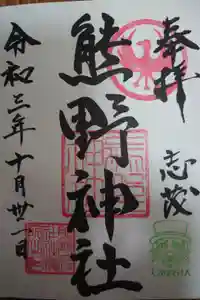 奉拝
志茂
熊野神社
令和三年十月廿一日